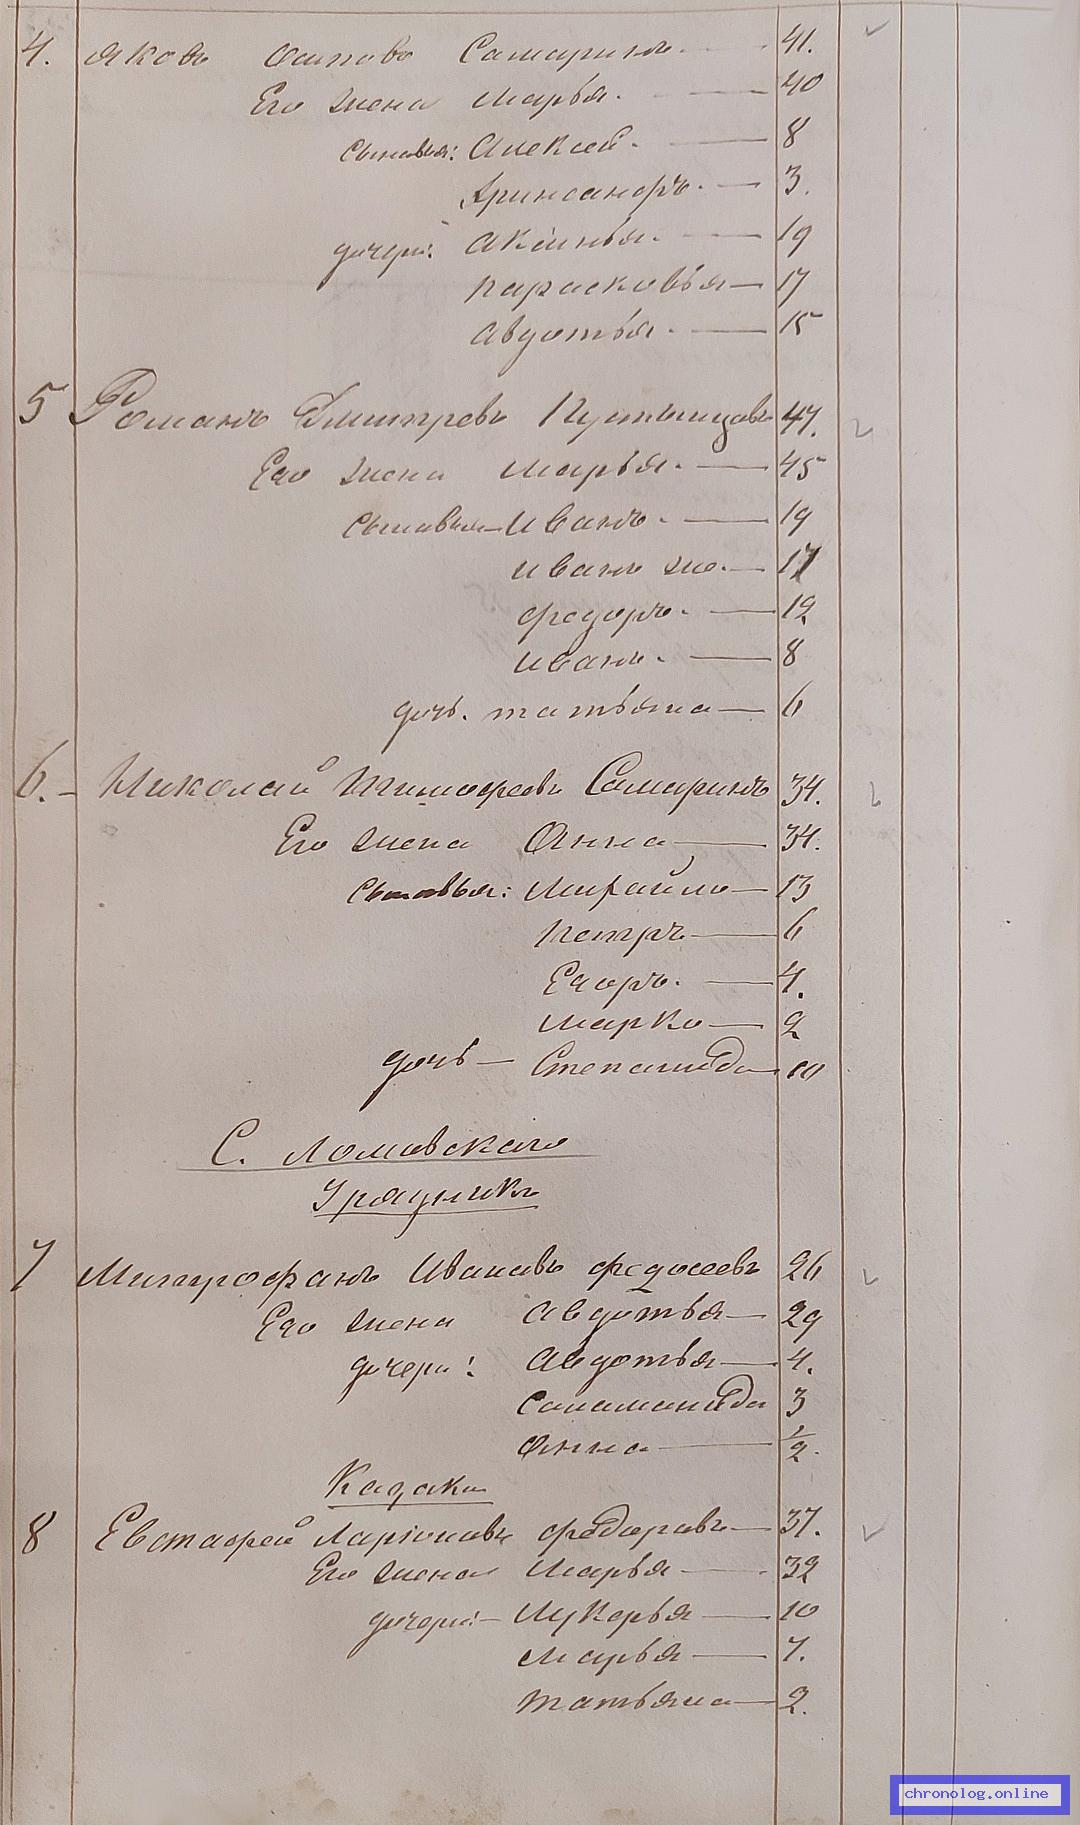 4. Яковъ Осиповъ Самаринъ. 41.
Его жена Марья. 40
сыновья: Алексей. 8
3.
дочери: Аксинья. 19
Парасковья 17
Авдотья. 15
5 Романъ Дмитревъ 47.
Его жена Марья. 45
Сыновья Иванъ. 19
Иванъ же. 17
Федоръ. 12
Иванъ. 8
дочь. Татьяна 6
6. Николай Тимофеевъ Самаринъ 34.
Его жена Анна 34.
Сыновья: Михайло 13
Петръ 6
Егоръ. 4.
Марко 2
дочь Степанида 10
С. Ломовскаго
Урядникъ
7 Митрофанъ Ивановъ Федосеевъ 26
Его жена Авдотья 29
дочери: Авдотья 4.
Саламанида 3
Анна 1/2.
Казаки
8 Евстафей Ларіоновъ Федоровъ 37.
Его жена Марья 32
дочери: Лукерья 10
Марья 7.
Татьяна 2.
chronolog.online